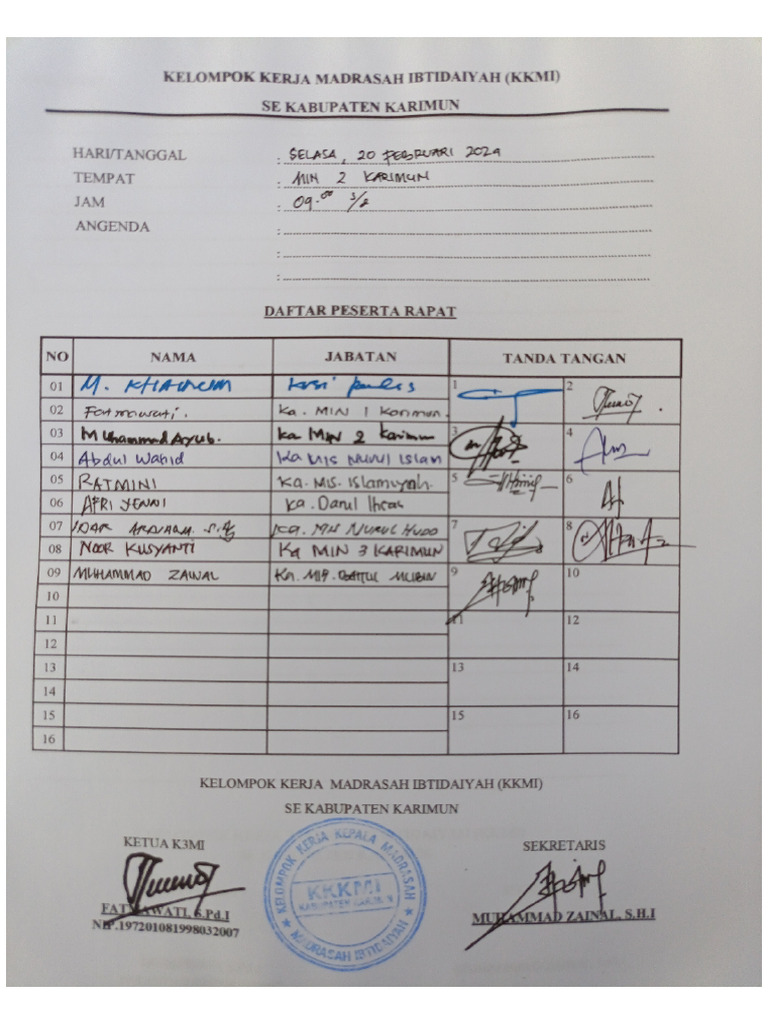 KELOMPOK KERJA MADRASAH IBTIDAIYAH (KKMI)
SE KABUPATEN KARIMUN
HARI/TANGGAL : SELASA, 20 FEBRUARI 2024
TEMPAT : MIN 2 KARIMUN
JAM : 09.00 s/d
ANGENDA :
:
:
DAFTAR PESERTA RAPAT
NO NAMA JABATAN TANDA TANGAN
01 M. KHAIRUM 1 2
02 Fatmawati. Ka. MIN 1 Karimun.
03 Muhammad Ayub. Ka MIN 2 Karimun 3 4
04 Abdul Wahid Ka MIS NURUL Islam
05 RATMINI Ka. MIS. Islamiyah. 5 6
06 AFRI YENNI Ka. Darul Ihcas
07 Ka. MIS NURUL HUDO 7 8
08 NOOR KUSYANTI Ka MIN 3 KARIMUN
09 MUHAMMAD ZAINAL Ka. MIS. BAITUL MUBIN 9 10
10
11 11 12
12
13 13 14
14
15 15 16
16
KELOMPOK KERJA MADRASAH IBTIDAIYAH (KKMI)
SE KABUPATEN KARIMUN
KETUA K3MI SEKRETARIS
KELOMPOK KERJA KEPALA MADRASAH
KKKMI
KABUPATEN KARIMUN
MADRASAH IBTIDAIYAH
FATMAWATI, S.Pd.I MUHAMMAD ZAINAL, S.H.I
NIP.197201081998032007